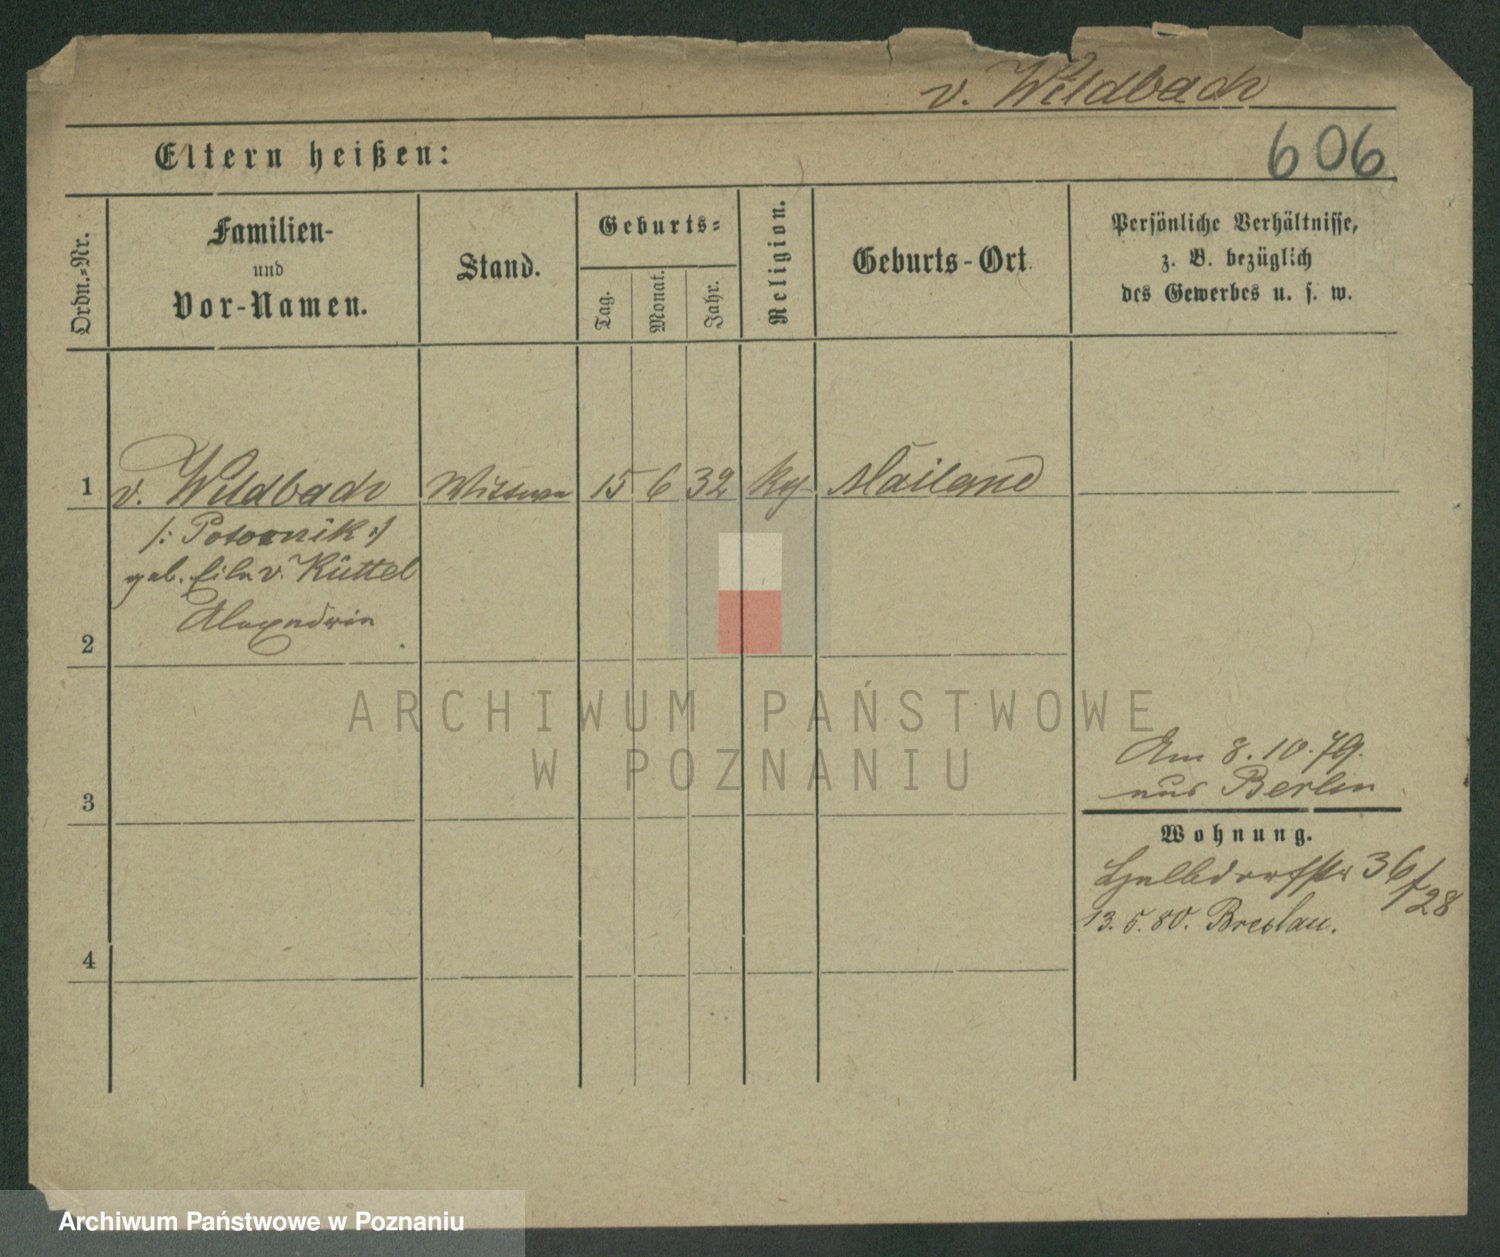 v. Wildbach
606
Eltern heißen:
Ordn.=Nr.
Familien-
und
Vor-Namen.
Stand.
Geburts=
Tag.
Monat.
Jahr.
Religion.
Geburts-Ort.
Persönliche Verhältnisse,
z. B. bezüglich
des Gewerbes u. s. w.
1 v. Wildbach Wittwe 15 6 32 kg Mailand
/: Potocnik :/
geb. v. Küttel
Alexandrin
2
ARCHIWUM PAŃSTWOWE
W POZNANIU
Am 8. 10. 79.
aus Berlin
3
Wohnung.
Halbdorfstr 36/28
13. 5. 80. Breslau.
4
Archiwum Państwowe w Poznaniu